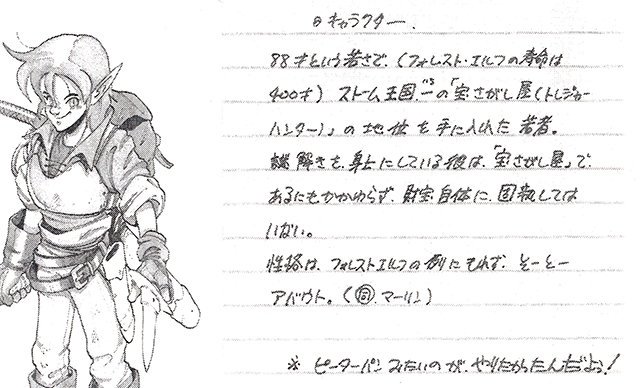 ◎キャラクター.
88才という若さで、(フォレスト・エルフの寿命は
400才) ストーム王国一の「宝さがし屋(トレジャー
ハンター)」の地位を手に入れた若者。
謎解きを、身上にしている彼は、「宝さがし屋」で、
あるにもかかわらず、財宝自体に、固執しては
いない。
性格は、フォレストエルフの例にもれず、そーとー
アバウト。(同 マーリン)
※ ピーターパンみたいのが、やりたかったんだよう!